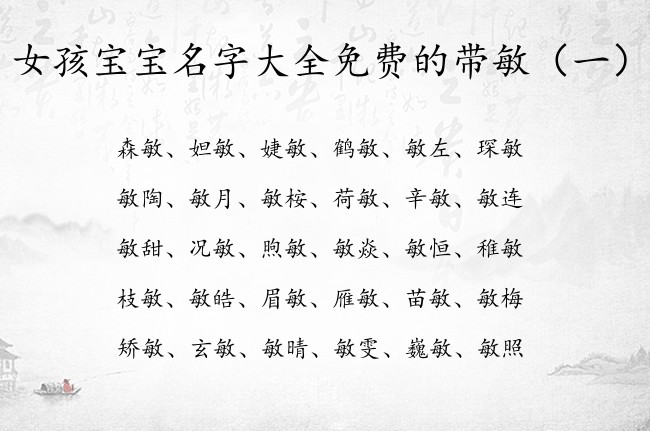 女孩宝宝名字大全免费的带敏（一）
森敏、妲敏、婕敏、鹤敏、敏左、琛敏
敏陶、敏月、敏桉、荷敏、辛敏、敏连
敏甜、况敏、煦敏、敏焱、敏恒、稚敏
枝敏、敏皓、眉敏、雁敏、苗敏、敏梅
矫敏、玄敏、敏晴、敏雯、巍敏、敏照